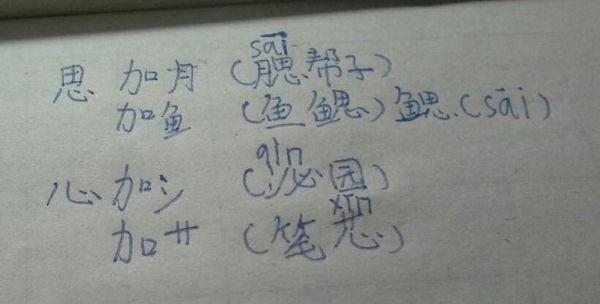 sāi
思 加月 (腮帮子)
加鱼 (鱼鳃) 鳃 (sāi)
qìn
心 加氵 (沁园)
xīn
加艹 (笔芯)